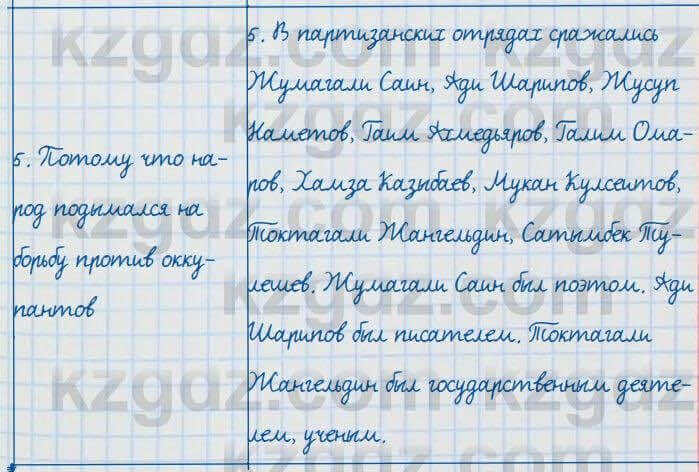 5. Потому что на-
род подымался на
борьбу против окку-
пантов
5. В партизанских отрядах сражались
Жумагали Саин, Ади Шарипов, Жусуп
Каметов, Гаим Ахмедьяров, Галим Ома-
ров, Хамза Казыбаев, Мукан Кулсеитов,
Токтагали Жангельдин, Сатымбек Ту-
лешев. Жумагали Саин был поэтом. Ади
Шарипов был писателем. Токтагали
Жангельдин был государственным деяте-
лем, ученым.
kzgdz.com